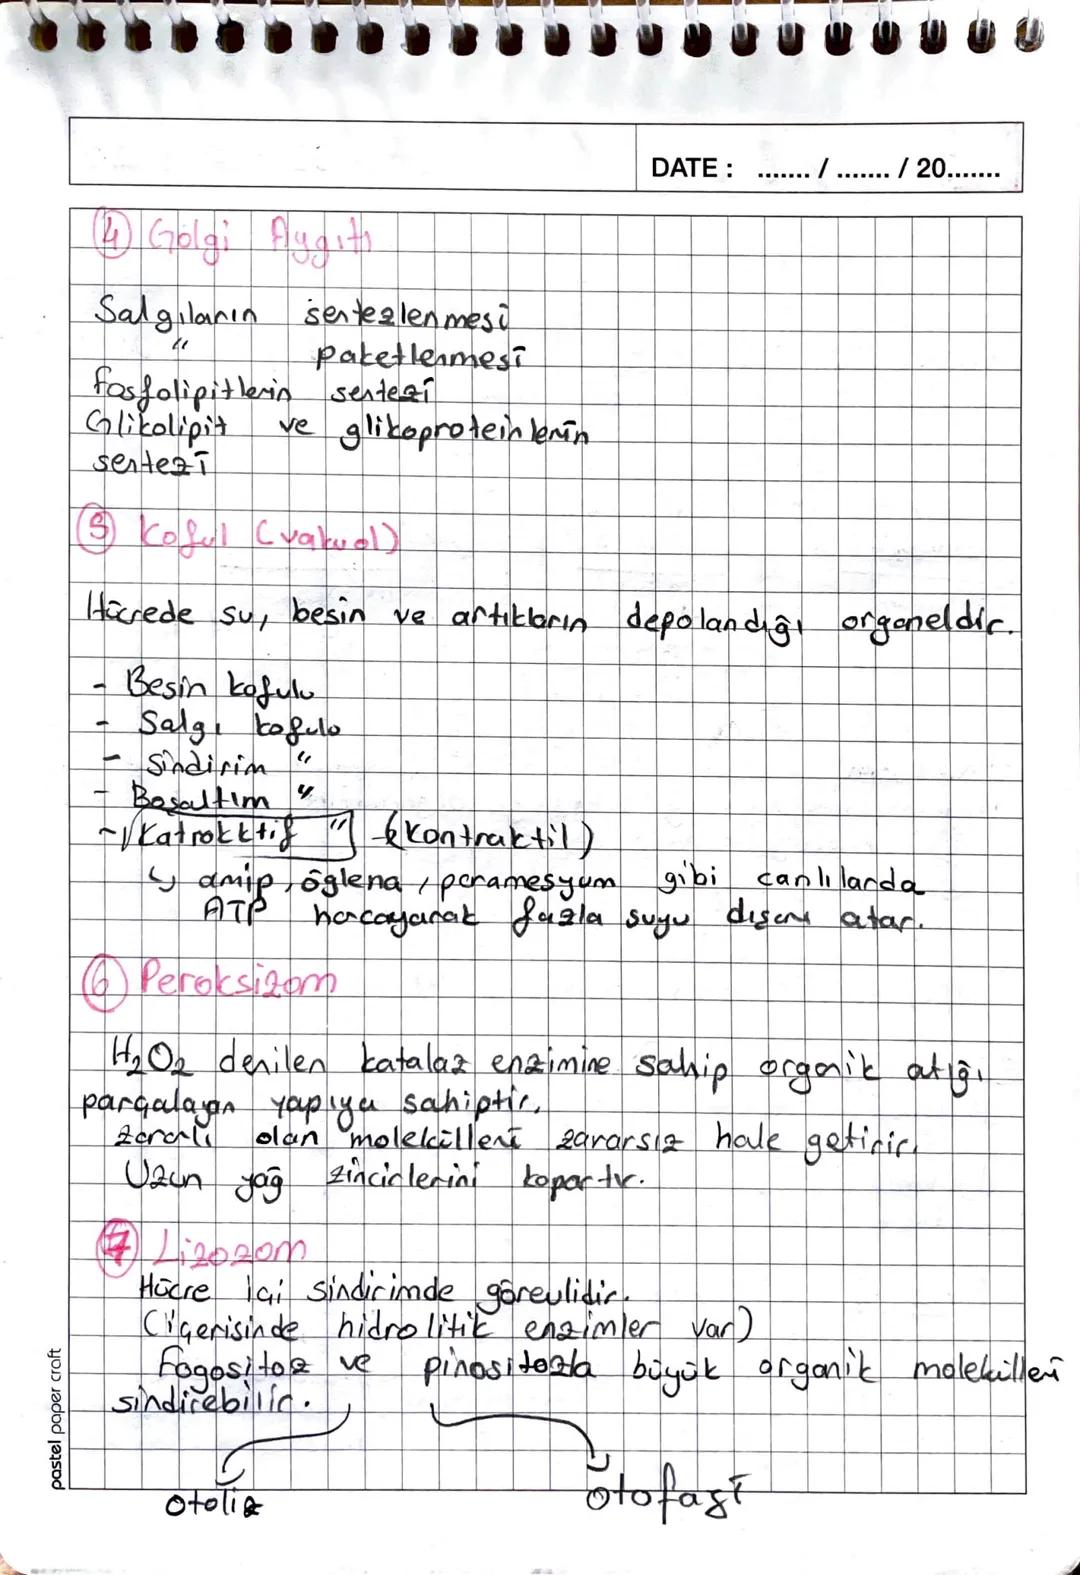 DATE : ....... / ....... / 20.......
4 Golgi Aygıtı
Salgıların sentezlenmesi
" paketlenmesi
fosfolipitlerin sentezi
Glikolipit ve glikoproteinlerin
sentezi
5 Koful (vakuol)
Hücrede su, besin ve artıkların depolandığı organeldir.
- Besin kofulu
- Salgı kofulu
- Sindirim "
- Boşaltım "
- Katrokktif " (kontraktil)
↳ amip, öglena, paramesyum gibi canlılarda
ATP harcayarak fazla suyu dışarı atar.
6 Peroksizom
H₂O₂ denilen katalaz enzimine sahip organik atığı
parçalayan yapıya sahiptir.
zararlı olan molekülleri zararsız hale getirir.
Uzun yağ zincirlerini kopartır.
7 Lizozom
Hücre içi sindirimde görevlidir.
(içerisinde hidrolitik enzimler var)
Fagositoz ve pinositozla büyük organik molekülleri
sindirebilir.
otoliz otofagi
pastel paper craft